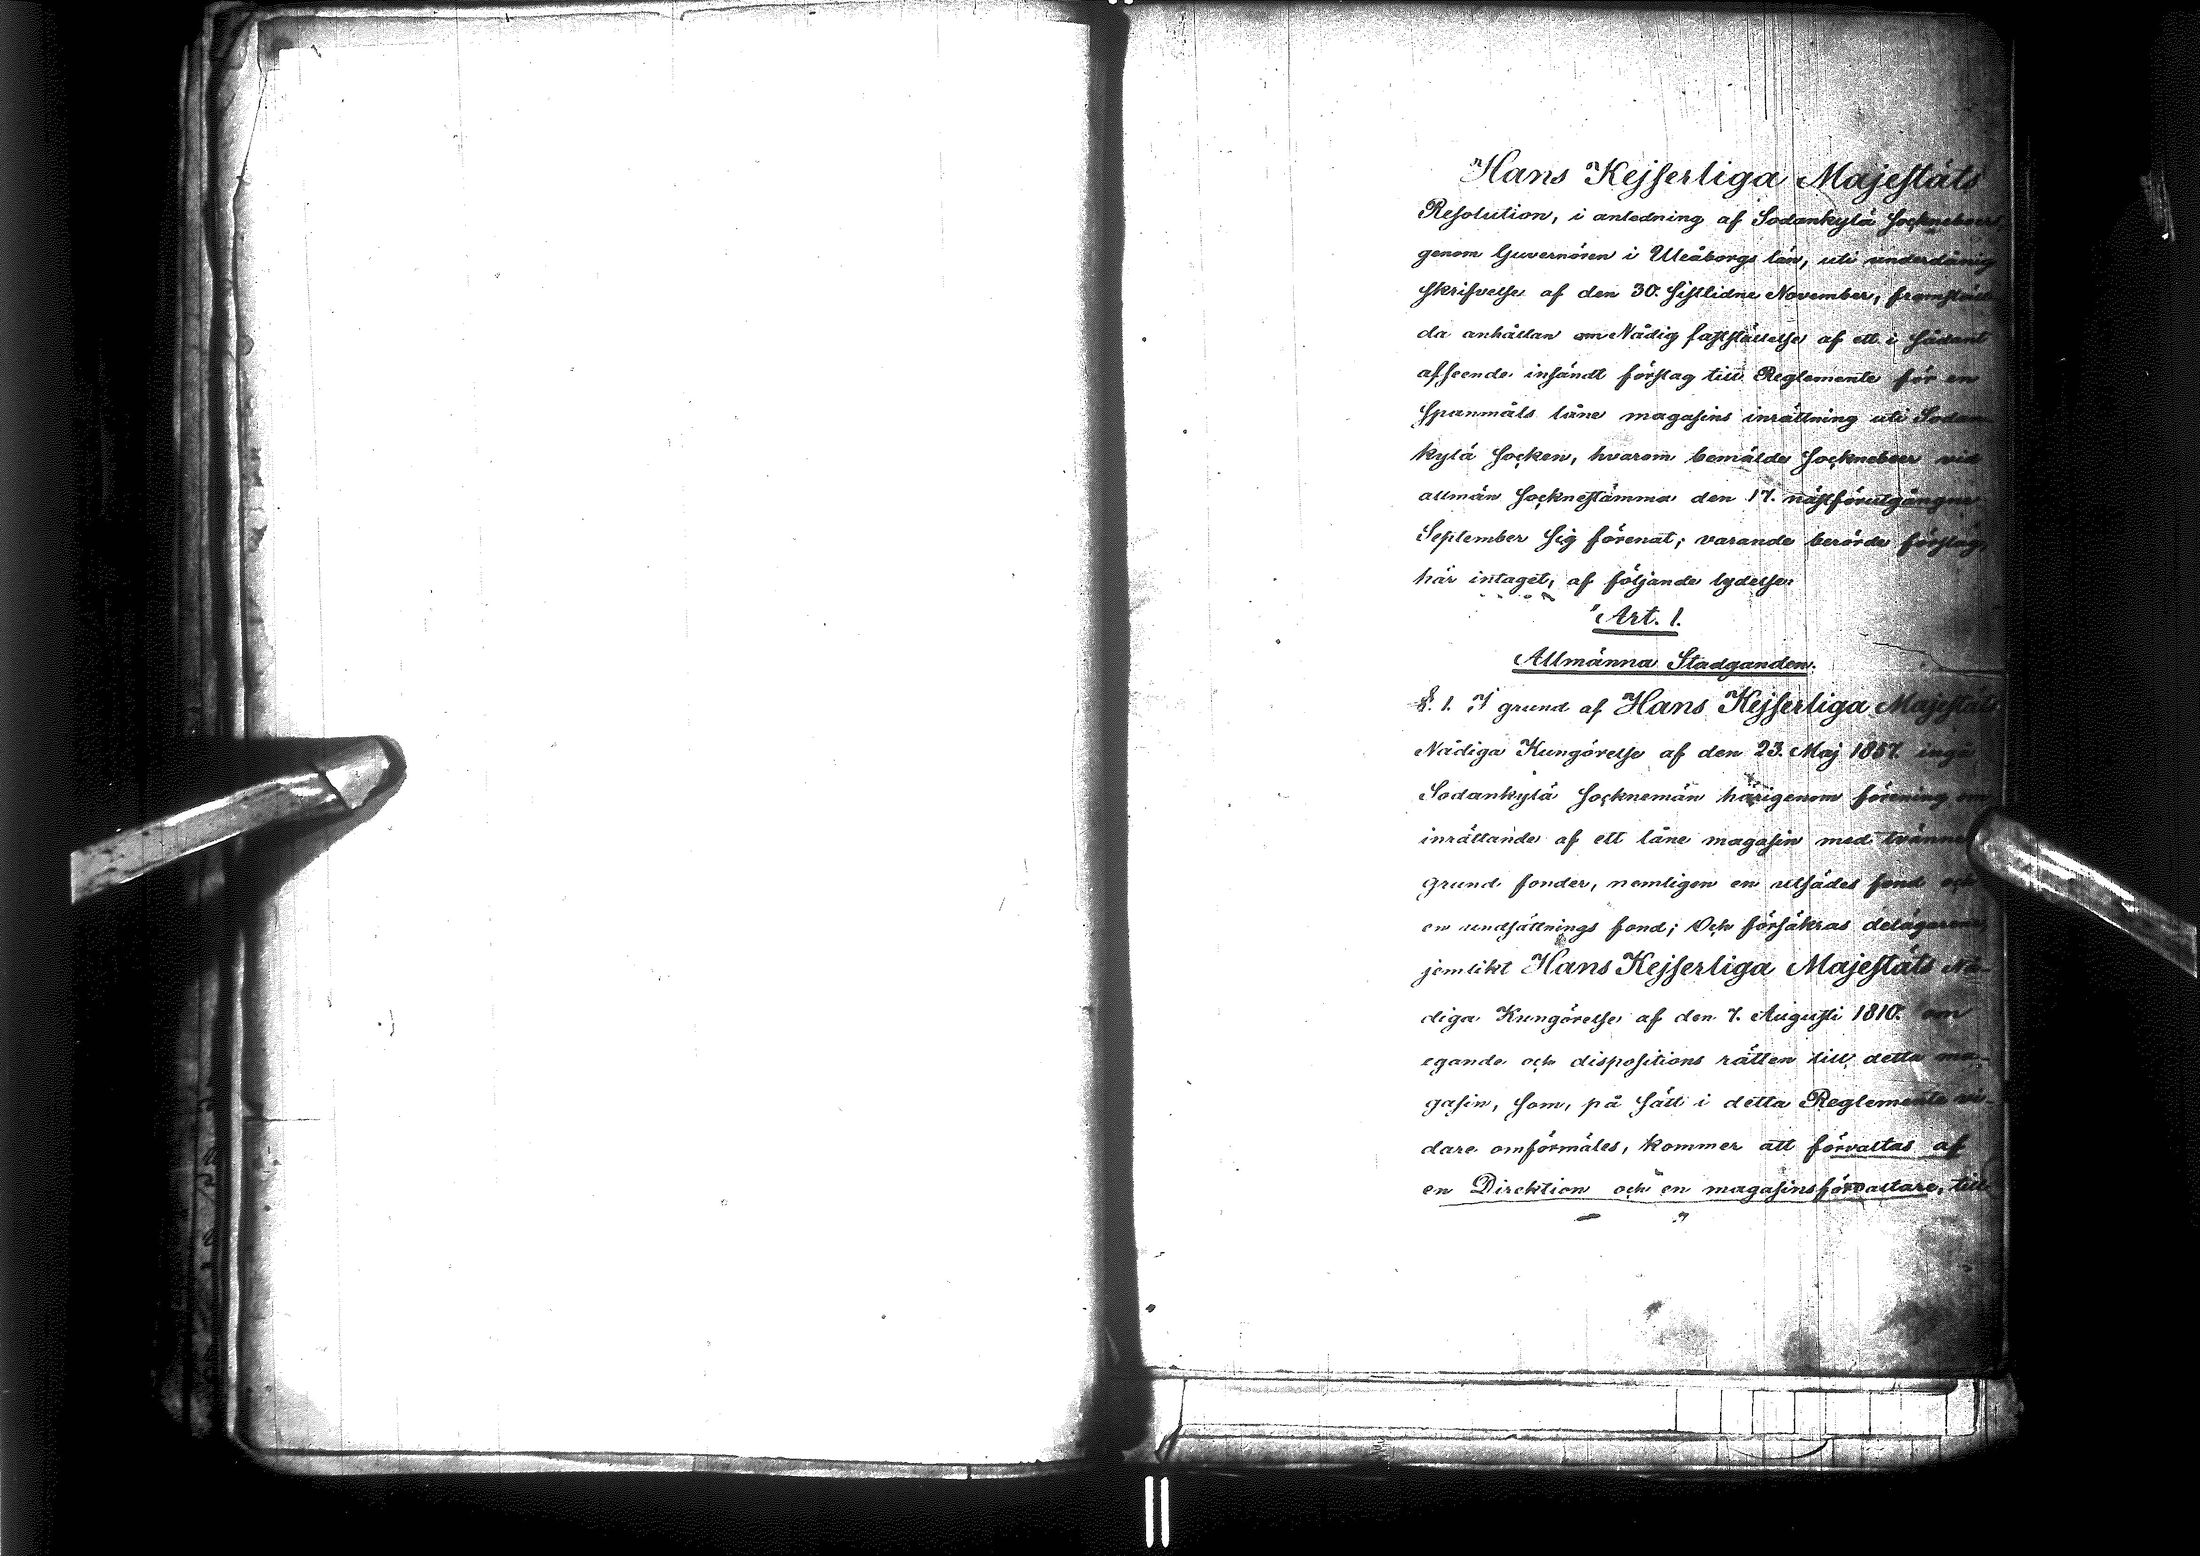 Hans Kejserliga Majestäts
Resolution, i anledning af Sodankylä Sockneboers
genom Guvernören i Uleåborgs län, uti underdånig
skrifvelse af den 30. sistlidne November, framstäl
da anhållan om Nådig fastställelse af ett i sådant
afseende insändt förslag till Reglemente för en
Spanmåls låne magasins inrättning uti Sodan
kylä Socken, hvarom bemälde Sockneboer vid
allmän Socknestämma den 17. nästförutgångne
September sig förenat; varande berörde förslag,
här intaget, af följande lydelse:
"Art. 1.
Allmänna Stadganden.
§. 1. I grund af Hans Kejserliga Majestäts
Nådiga Kungörelse af den 23. Maj 1857. ingå
Sodankylä Socknemän härigenom förening om
inrättande af ett låne magasin med tvänne
grund fonder, nemligen en utsädes fond och
en undsättnings fond; Och försäkras delägarene,
jemlikt Hans Kejserliga Majestäts Nå-
diga Kungörelse af den 7. Augusti 1810. om
egande och dispositions rätten till detta ma-
gasin, som, på sätt i detta Reglemente vi-
dare omförmäles, kommer att förvaltas af
en Direktion och en magasinsförvaltare, till